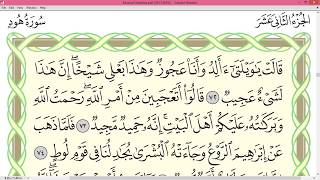 الجزء الثاني عشر
سورة هود
قَالَتْ يَٰوَيْلَتَىٰٓ ءَأَلِدُ وَأَنَا۠ عَجُوزٌ وَهَٰذَا بَعْلِى شَيْخًا ۖ إِنَّ هَٰذَا
لَشَىْءٌ عَجِيبٌ ٧٢ قَالُوٓا۟ أَتَعْجَبِينَ مِنْ أَمْرِ ٱللَّهِ ۖ رَحْمَتُ ٱللَّهِ
وَبَرَكَٰتُهُۥ عَلَيْكُمْ أَهْلَ ٱلْبَيْتِ ۚ إِنَّهُۥ حَمِيدٌ مَّجِيدٌ ٧٣ فَلَمَّا ذَهَبَ
عَنْ إِبْرَٰهِيمَ ٱلرَّوْعُ وَجَآءَتْهُ ٱلْبُشْرَىٰ يُجَٰدِلُنَا فِى قَوْمِ لُوطٍ ٧٤